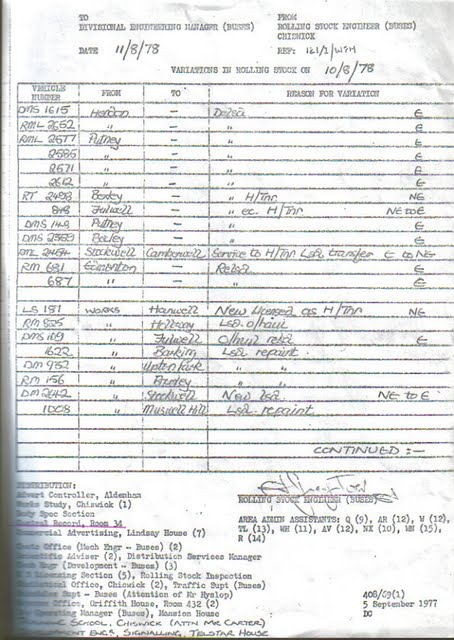 TO FROM
DIVISIONAL ENGINEERING MANAGER (BUSES) ROLLING STOCK ENGINEER (BUSES)
CHISWICK
DATE 11/8/78 REF: 121/1/WPH
VARIATIONS IN ROLLING STOCK ON 10/8/78
VEHICLE NUMBER FROM TO REASON FOR VARIATION
DMS 1615 Hendon - Delsd E
RML 2552 " - " E
RML 2577 Putney - " E
2585 - " E
2671 - " E
2612 " - " E
RT 2498 Bexley - " H/Tnr NE
848 Fulwell - " ec. H/Tnr NE to E
DMS 149 Putney - " E
DMS 2559 Bexley - " E
RML 2454 Stockwell Camberwell Service to H/Tnr Lsd transfer E to NE
RM 681 Edmonton - Relsd E
687 " - " E
LS 181 WORKS Hanwell New Licensed as H/Tnr NE
RM 825 " Holloway Lsd. o/haul
DMS 109 " Fulwell O/haul relsd E
1622 " Barking Lsd repaint
DM 952 " Upton Park " "
RM 156 " Bromley " "
DM 2642 " Stockwell New lsd NE to E
1008 " Muswell Hill Lsd. repaint
CONTINUED :-
DISTRIBUTION:
Advert Controller, Aldenham
Works Study, Chiswick (1)
Body Spec Section
Central Record, Room 34
Commercial Advertising, Lindsay House (7)
Office (Mech Engr - Buses) (2)
Scientific Adviser (2), Distribution Services Manager
Mech Engr (Development - Buses) (3)
Licensing Section (5), Rolling Stock Inspection
Office, Chiswick (2), Traffic Supt (Buses)
Supt - Buses (Attention of Mr Hyslop)
Office, Griffith House, Room 432 (2)
Operating Manager (Buses), Mansion House
SCHOOL, CHISWICK (ATTN MR CARTER)
ENGR, SIGNALLING, TELSTAR HOUSE
ROLLING STOCK ENGINEER (BUSES)
AREA ADMIN ASSISTANTS: Q (9), AR (12), W (12),
TL (13), WH (11), AV (12), NX (10), WN (15),
R (14)
408/69(1)
5 September 1977
DG